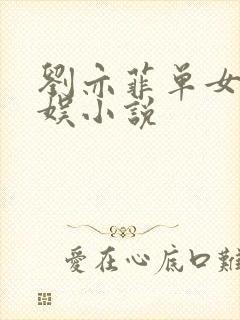 劉亦菲单女
娱小說
愛在心底口難